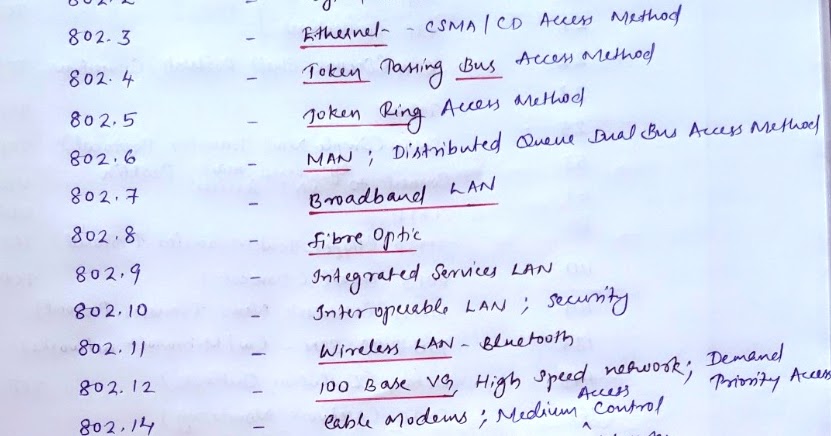 802.3 - Ethernet - CSMA/CD Access Method
802.4 - Token Passing Bus Access Method
802.5 - Token Ring Access Method
802.6 - MAN ; Distributed Queue Dual Bus Access Method
802.7 - Broadband LAN
802.8 - Fibre Optic
802.9 - Integrated Services LAN
802.10 - Interoperable LAN ; Security
802.11 - Wireless LAN - Bluetooth
802.12 - 100 Base VG, High Speed network ; Demand Priority Access
802.14 - Cable Modems ; Medium Access Control